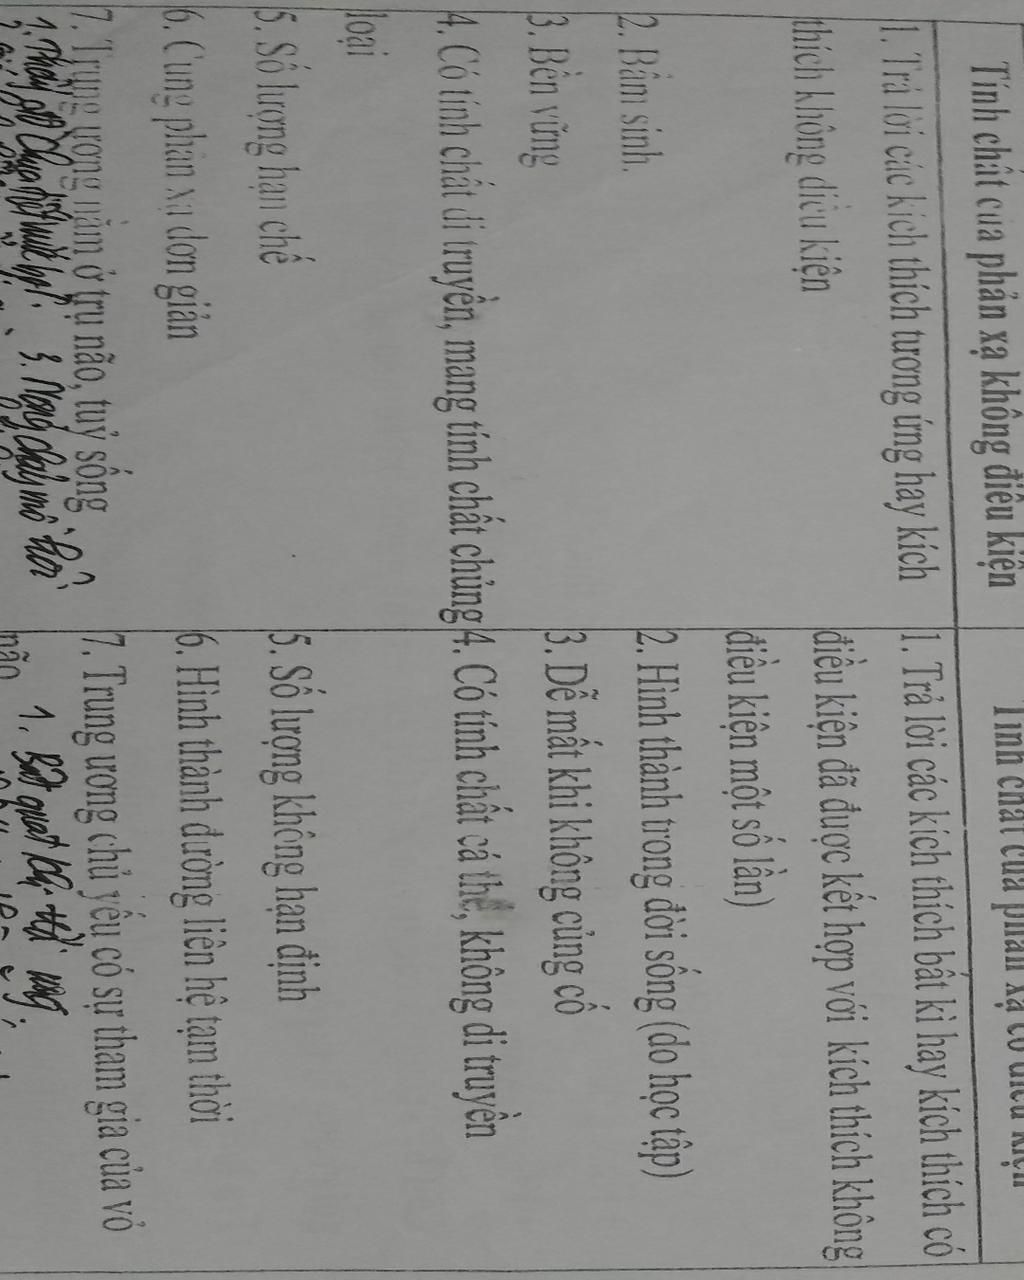 Tính chất của phản xạ không điều kiện
1. Trả lời các kích thích tương ứng hay kích
thích không điều kiện
2. Bẩm sinh.
3. Bền vững
4. Có tính chất di truyền, mang tính chất chủng
loại
5. Số lượng hạn chế
6. Cung phản xạ đơn giản
7. Trung ương nằm ở trụ não, tuỷ sống
3. Nóng chảy mồ hôi
Tính chất của phản xạ có điều kiện
1. Trả lời các kích thích bất kì hay kích thích có
điều kiện đã được kết hợp với kích thích không
điều kiện một số lần)
2. Hình thành trong đời sống (do học tập)
3. Dễ mất khi không củng cố
4. Có tính chất cá thể, không di truyền
5. Số lượng không hạn định
6. Hình thành đường liên hệ tạm thời
7. Trung ương chủ yếu có sự tham gia của vỏ
não
1. Bật quạt